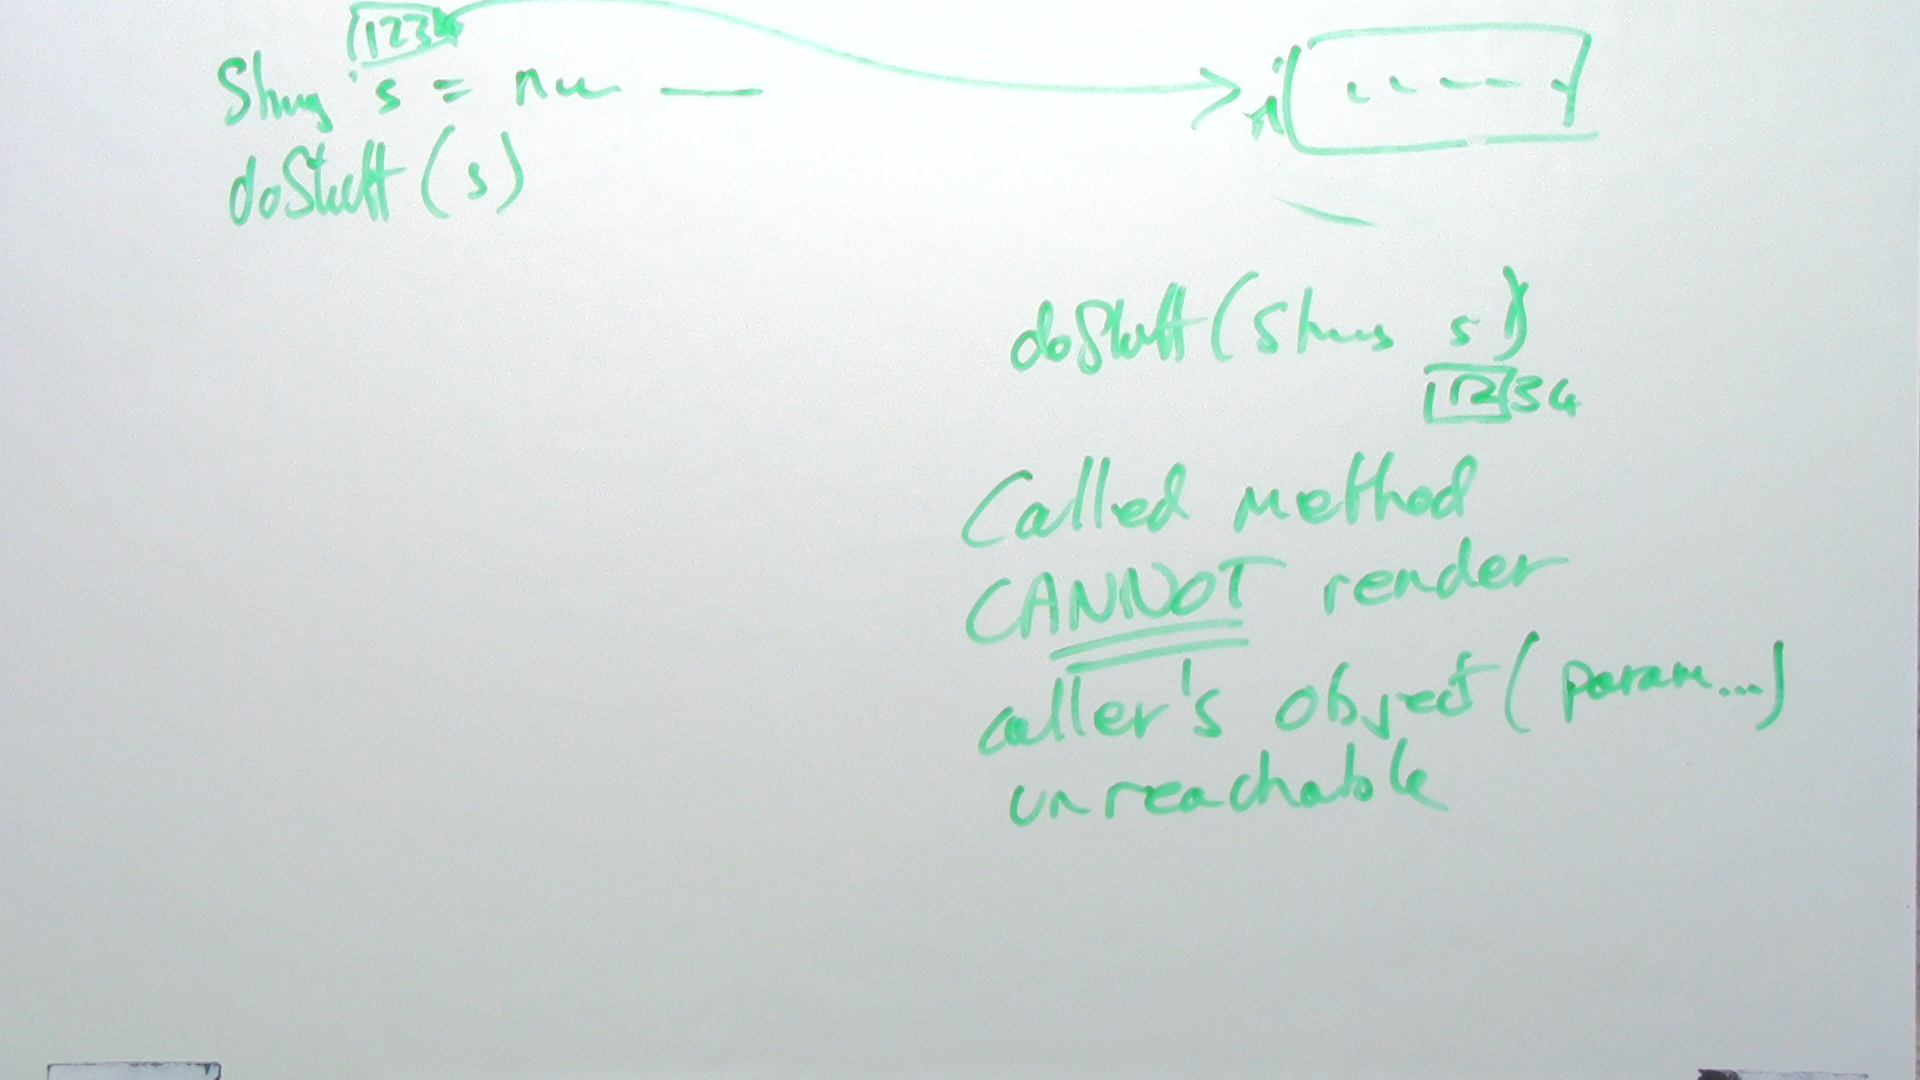 1234
String s = new —
doStuff(s)
doStuff(String s)
1234
Called method
CANNOT render
caller's object (param...)
unreachable